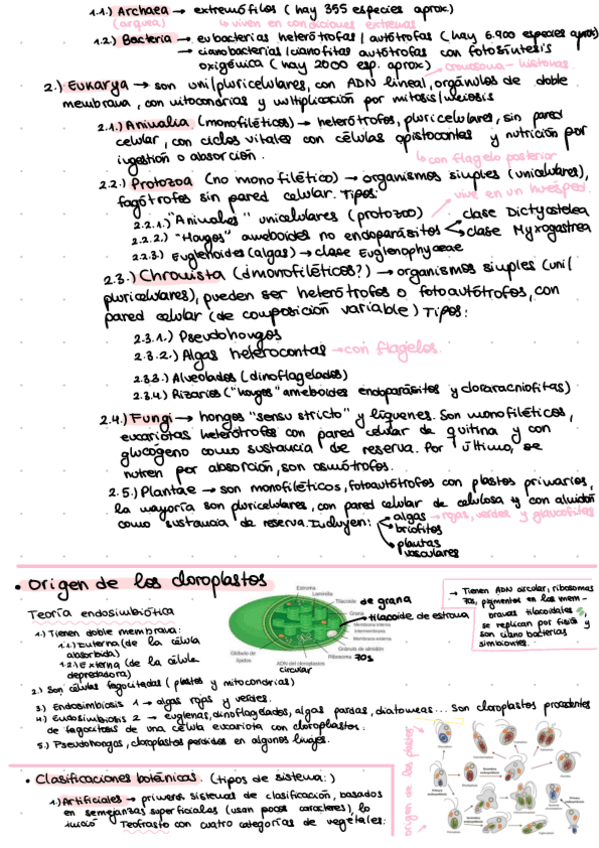 1.1.) Archaea → extremófilos (hay 355 especies aprox.)
(arquea) ↳ viven en condiciones extremas
1.2.) Bacteria → eubacterias heterótrofas / autótrofas (hay 6.900 especies aprox)
→ cianobacterias/cianofitas autótrofas con fotosíntesis
oxigénica (hay 2000 esp. aprox.)
cromosoma - histonas
2.) Eukarya → son uni/pluricelulares, con ADN lineal, orgánulos de doble
membrana, con mitocondrias y multiplicación por mitosis/meiosis
2.1.) Animalia (monofiléticos) → heterótrofos, pluricelulares, sin pared
celular, con ciclos vitales con células opistocontas y nutrición por
ingestión o absorción.
↳ con flagelo posterior
2.2.) Protozoa (no monofilético) → organismos simples (unicelulares),
fagótrofos sin pared celular. Tipos:
vive en un huésped.
2.2.1.) "Animales" unicelulares (protozoo)
2.2.2.) "Hongos" ameboides no endoparásitos
clase Dictyostelea
clase Myxogastrea
2.2.3.) Euglenoides (algas) → clase Euglenophyceae
2.3.) Chromista (¿monofiléticos?) → organismos simples (uni/
pluricelulares), pueden ser heterótrofos o fotoautótrofos, con
pared celular (de composición variable) Tipos:
2.3.1.) Pseudohongos
2.3.2.) Algas heterocontas → con flagelos.
2.3.3.) Alveolados (dinoflagelados)
2.3.4.) Rizarios ("hongos" ameboides endoparásitos y cloraracniofitas)
2.4.) Fungi → hongos "sensu stricto" y líquenes. Son monofiléticos,
eucariotas heterótrofos con pared celular de quitina y con
glucógeno como sustancia de reserva. Por último, se
nutren por absorción, son osmótrofos.
2.5.) Plantae → son monofiléticos, fotoautótrofos con plastos primarios,
la mayoría son pluricelulares, con pared celular de celulosa y con almidón
como sustancia de reserva. Incluyen:
algas → rojas, verdes y glaucofitas
briofitos
plantas
vasculares
• Origen de los cloroplastos
Teoría endosimbiótica
1.) Tienen doble membrana:
1.1) Interna (de la célula
absorbida)
1.2) Externa (de la célula
depredadora)
2.) Son células fagocitadas (plastos y mitocondrias)
3.) Endosimbiosis 1 → algas rojas y verdes.
4.) Endosimbiosis 2 → euglenas, dinoflagelados, algas pardas, diatomeas... Son cloroplastos procedentes
de fagocitosis de una célula eucariota con cloroplastos.
5.) Pseudohongos, cloroplastos perdidos en algunos linajes.
Estroma
Laminilla
Tilacoide de grana
Grana
tilacoide de estroma
Membrana interna
Intermembrana
Membrana externa
Gránulo de almidón
Ribosoma 70s
ADN del cloroplasto
circular
Glóbulo de
lípidos
→ Tienen ADN circular, ribosomas
70s, pigmentos en las mem-
branas tilacoidales,
se replican por fisión y
son cianobacterias
simbiontes.
• Clasificaciones botánicas. (tipos de sistema:)
1.) Artificiales → primeros sistemas de clasificación, basados
en semejanzas superficiales (usan pocos caracteres), lo
inició Teofrasto con cuatro categorías de vegetales:
origen de los plastos